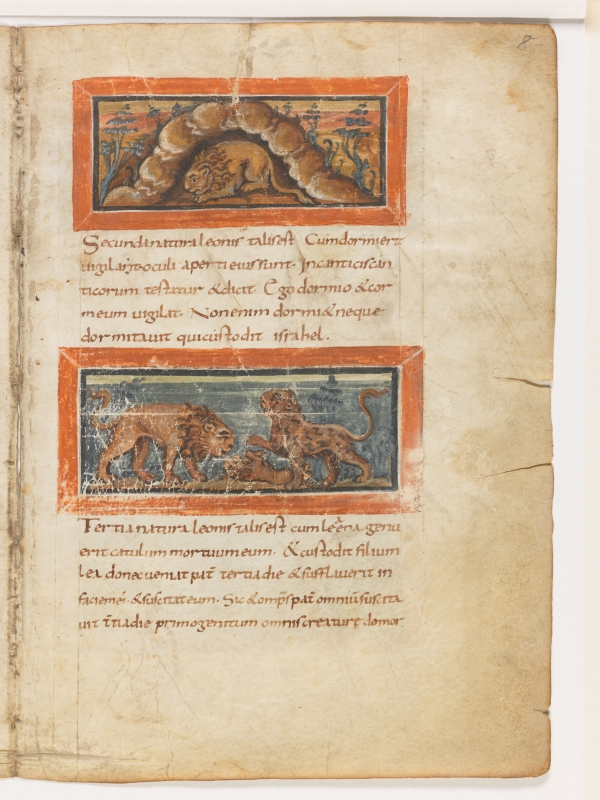 8
Secunda natura leonis talis est Cum dormierit
vigilant oculi aperti eius sunt. In canticis can
ticorum testatur & dicit. Ego dormio & cor
meum uigilat. Non enim dormi& neque
dormitauit qui custodit israhel.
Tertia natura leonis talis est cum leena genu
erit catulum mortuum eum. & custodit filium
lea donec ueniat pat̄ tertia die & sufflauerit in
faciem ei & suscitat eum. Sic & omp̄s pat̄ omniū suscita
uit t̄tia die primogenitum omnis creaturę domor